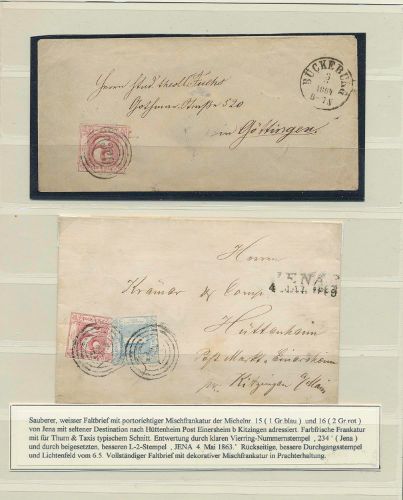 BÜCKEBURG
Herrn Stud. theol. Fuchs
Gothmar Straße 520
in Göttingen.
Herren
JENA
Krämer & Comp.
Hüttenheim
Post Markt Einersheim
per Kitzingen a/Main
Sauberer, weisser Faltbrief mit portorichtiger Mischfrankatur der Michelnr. 15 ( 1 Gr.blau ) und 16 ( 2 Gr.rot )
von Jena mit seltener Destination nach Hüttenheim Post Einersheim b Kitzingen adressiert. Farbfrische Frankatur
mit für Thurn & Taxis typischem Schnitt. Entwertung durch klaren Vierring-Nummernstempel , 234 ' ( Jena )
und durch beigesetzten, besseren L-2-Stempel , JENA 4 Mai 1863.' Rückseitige, bessere Durchgangsstempel
und Lichtenfeld vom 6.5. Vollständiger Faltbrief mit dekorativer Mischfrankatur in Prachterhaltung.